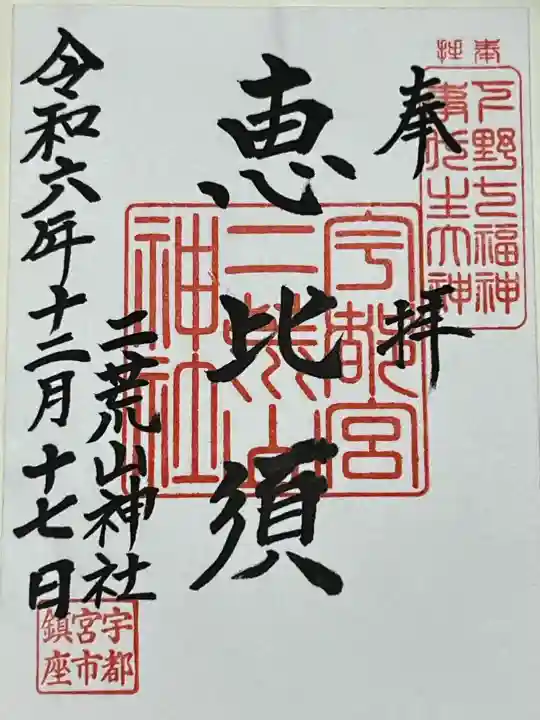 奉拝
下野七福神
事代主大神
恵比須
宇都宮
二荒山
神社
二荒山神社
令和六年十二月十七日
宇都
宮市
鎮座